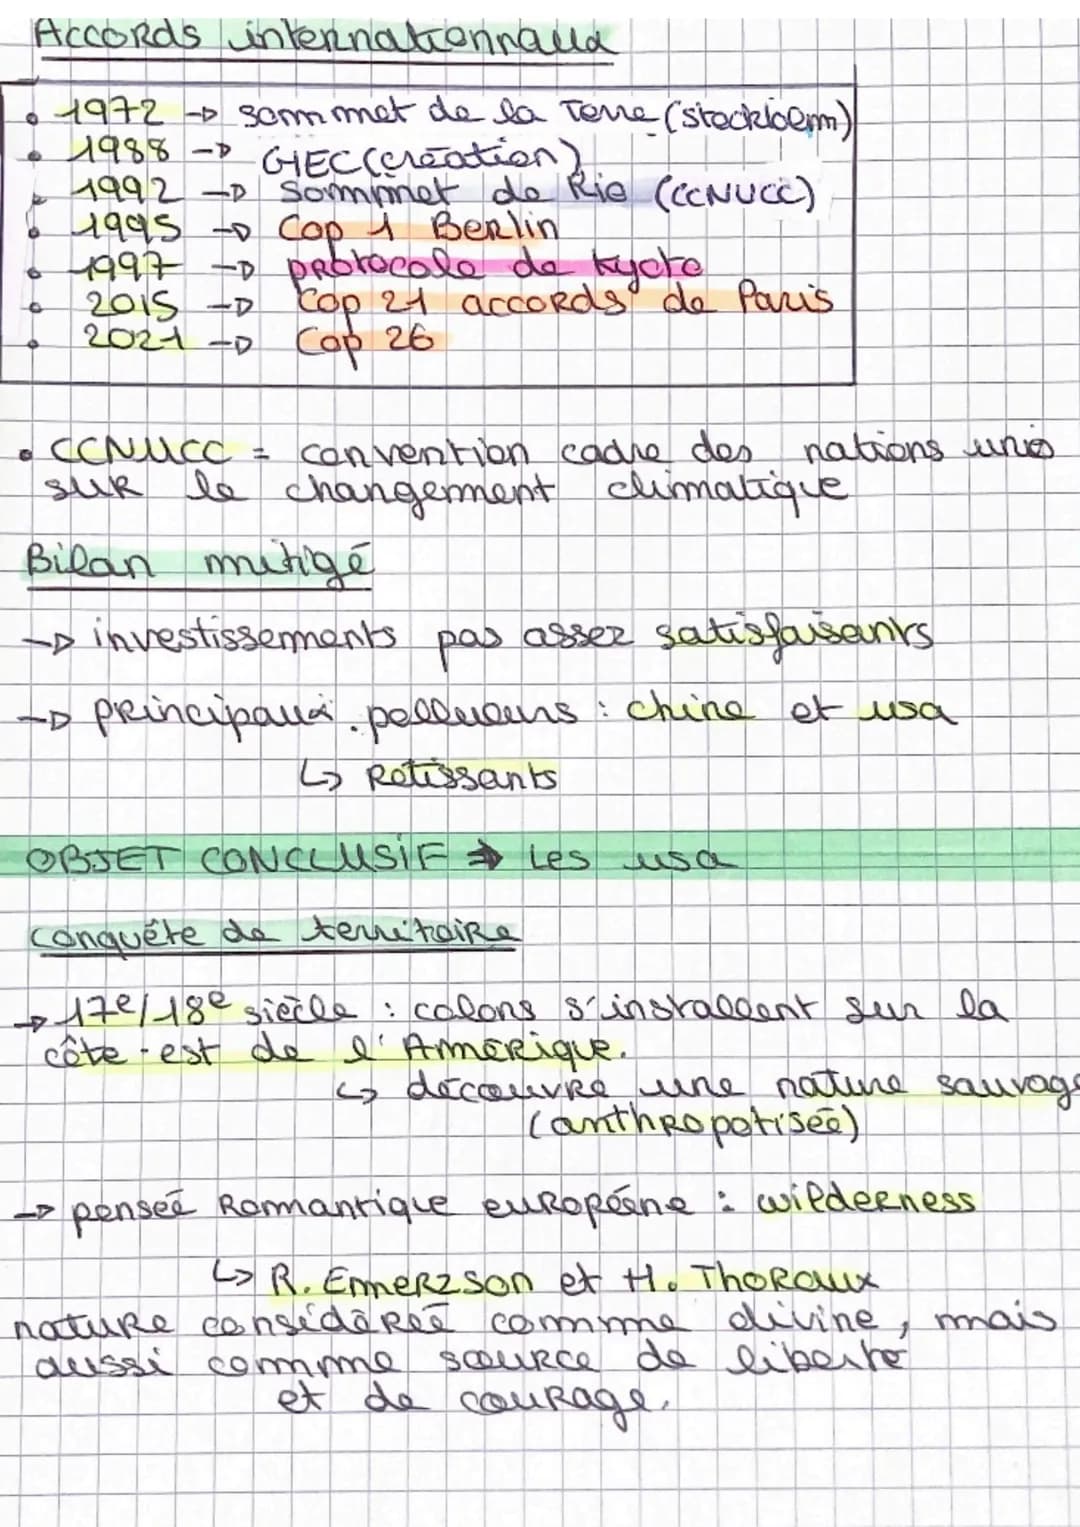 Accords internationnaux
• 1972 → sommet de la Terre (stockloem)
• 1988 → GIEC (création)
• 1992 → Sommet de Rio (CCNUCC)
• 1995 → Cop 1 Berlin
• 1997 → protocole de kyoto
• 2015 → Cop 21 accords de Paris
• 2021 → Cop 26
• CCNUCC = convention cadre des nations unies
sur le changement climatique
Bilan mitigé
→ investissements pas assez satisfaisants
→ principaux pollueurs : chine et usa
↳ Retissants
OBJET CONCLUSIF → Les usa
conquête de territoire
→ 17e/18e siècle : colons s'installent sur la
côte-est de l'Amérique.
↳ découvre une nature sauvage
(anthropotisée)
→ pensée Romantique européene : wilderness
↳ R. Emmerzson et H. Thoraux
nature considérée comme divine, mais
aussi comme source de liberté
et de courage.